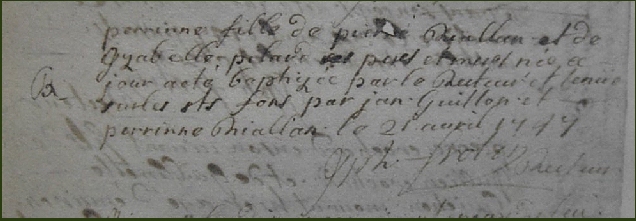 perrinne fille de pierre Rialland et de
yzabelle pelard ses pere et mere née ce
jour a ete baptizée par le Recteur et tenue
sur les sts fons par jan Guillon et
perrinne Riallan le 21 avril 1747
B
Recteur